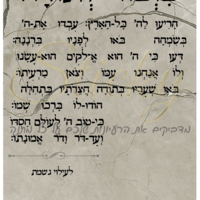 הריעו לה' כל-הארץ: עבדו את-ה'
בשמחה באו לפניו ברננה:
דעו כי ה' הוא א-לקים הוא-עשנו
ולו אנחנו עמו וצאן מרעיתו:
באו שעריו בתודה חצרתיו בתהלה
הודו-לו ברכו שמו:
מדביקים את הרעיונות שלכם על כל מתנה
כי-טוב ה' לעולם חסדו
ועד-דר ודר אמונתו:
לעילוי נשמת